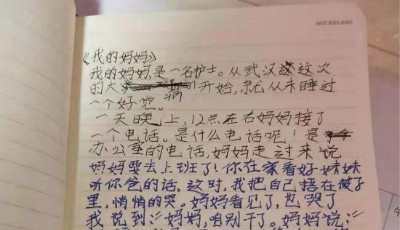 《我的妈妈》
我的妈妈,是一名护士。从武汉这次
的大病开始,就从未睡过
一个好觉。
一天晚上,12点左右妈妈接了
一个电话。是什么电话呢！是
办公室的电话,妈妈走过来说
妈妈要去上班了！你在家看好妹妹
听你爸的话,这时,我把自己捂在被子
里,悄悄的哭。妈妈看见了,也哭了
我说到:"妈妈,咱别干了。妈妈说:"